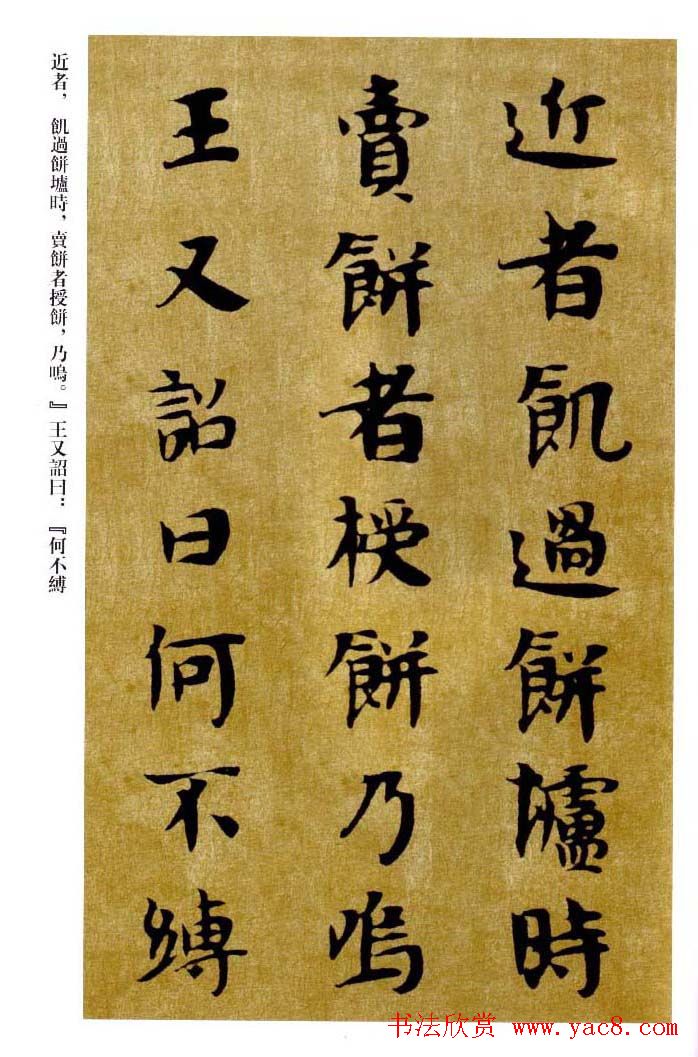 近者飢過餅壚時
賣餅者授餅乃嗚
王又詔曰何不縛
近者，飢過餅壚時，賣餅者授餅，乃嗚。』王又詔曰：『何不縛
书法欣赏 www.yac8.com